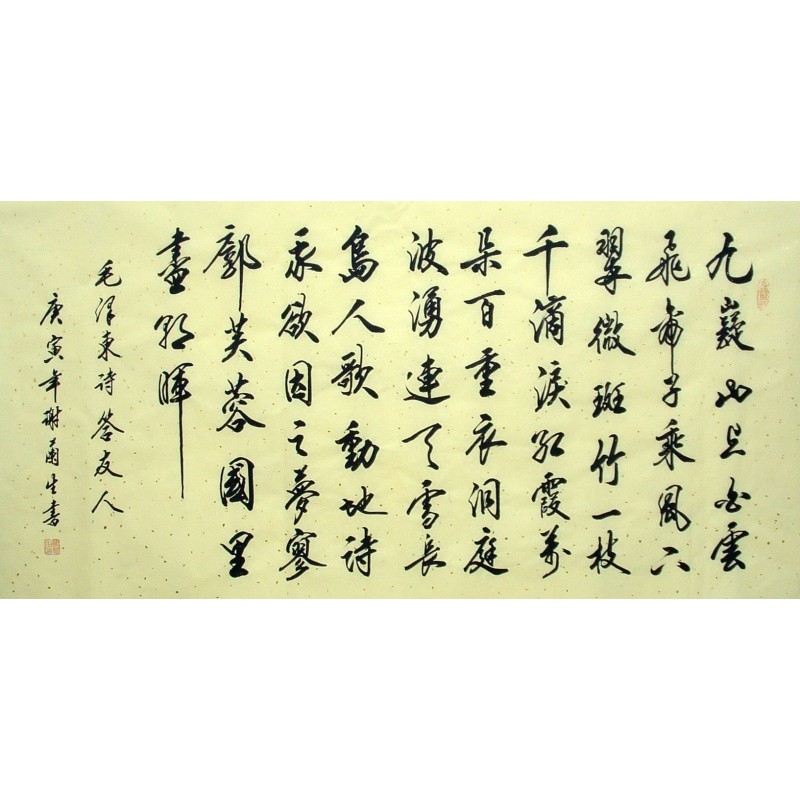 九嶷山上白雲
飛帝子乘風下
翠微斑竹一枝
千滴淚紅霞萬
朵百重衣洞庭
波湧連天雪長
島人歌動地詩
我欲因之夢寥
廓芙蓉國里
盡朝暉
毛澤東詩答友人
庚寅年謝蘭生書